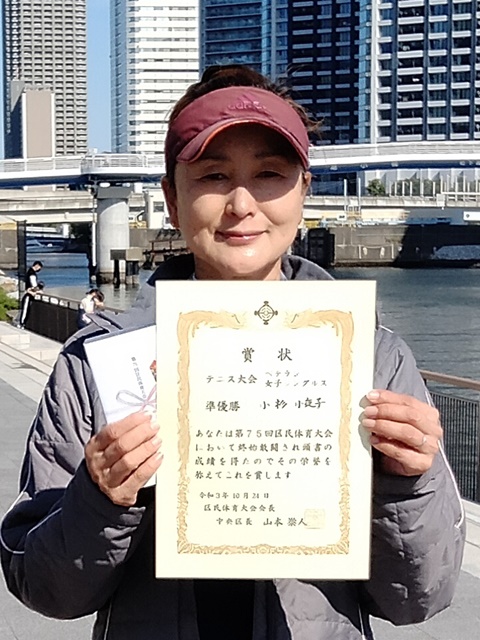 賞状
テニス大会 ベテラン
女子シングルス
準優勝 小杉
あなたは第75回区民体育大会
において終始敢闘され頭書の
成績を得たのでその栄誉を
称えてこれを賞します
令和3年10月24日
区民体育大会会長
中央区長 山本 泰人